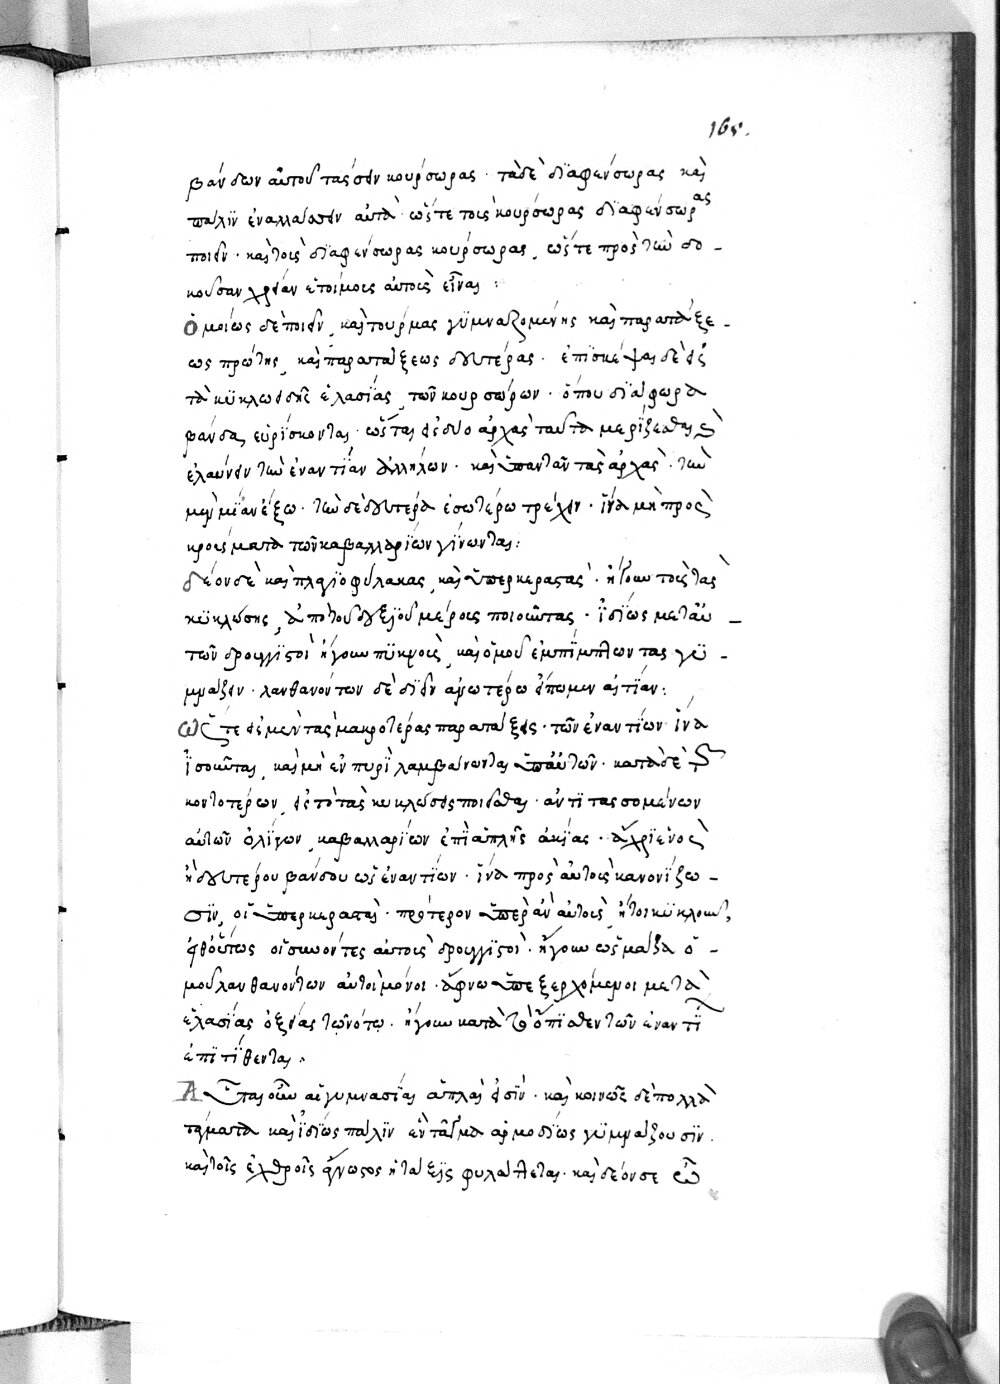 165.
βάνδων αὐτοῦ τασσειν κούρσωρας · τὰ δὲ διαφένσωρας καὶ
πάλιν ἐναλλάσσειν αὐτὰ ὥστε τοὺς κούρσωρας διαφένσωρας
ποιεῖν · καὶ τοὺς διαφένσωρας κούρσωρας, ὥστε πρὸς τὴν δο-
κοῦσαν χρείαν ἑτοίμους αὐτοὺς εἶναι :
Ὁμοίως δὲ ποιεῖν, καὶ τούρμας γυμναζομένης καὶ παρατάξε-
ως πρώτης, καὶ παρατάξεως δευτέρας · ἐπισκέψαι δὲ εἰς
τὰ κυκλώσης ἐλασίας, τῶν κουρσώρων · ὅπου διάφωρα
βάνδα, εὑρίσκονται · ὥστε εἰς δύο ἀρχὰς ταῦτα μερίζεσθαι καὶ
ἐλαύνειν τὴν ἐναντίαν ἀλλήλων · καὶ ὑπαντᾶν τὰς ἀρχὰς · τὴν
μὲν μίαν ἔξω · τὴν δὲ δευτέρα ἐσωτέρω τρέχειν · ἵνα μὴ πρὸς
κρούσματα τῶν καβαλλαρίων γίνωνται :
δέον δὲ καὶ πλαγιοφύλακας, καὶ ὑπερκεραστὰς · ἤγουν τοὺς τὰς
κυκλώσης, ἀπὸ τοῦ δεξιοῦ μέρους ποιοῦντας · ἰδίως μετ' αὐ-
τῶν δρουγγιστοὶ ἤγουν πυκνοὺς, καὶ ὁμοῦ ἐμπίμπλωντας γυ-
μνάζειν · λανθανόντων δὲ δι' ἣν ἀνωτέρω εἴπωμεν αἰτίαν :
Ὥστε εἰ μὲν τὰς μακροτέρας παρατάξεις · τῶν ἐναντίων ἵνα
ἰσοῦνται, καὶ μὴ ἐν πυρὶ λαμβάνωνται ὑπ' αὐτῶν · κατὰ δὲ τῶν
κοντοτέρων, εἰς τὸ τὰς κυκλώσεις ποιεῖσθαι · ἀντιτασσομένων
αὐτῶν ὀλίγων, καβαλλαρίων ἐπὶ ἁπλῆς ἀκίας · ἄχρι ἑνὸς
ἢ δευτέρου βάνδου ὡς ἐναντίων · ἵνα πρὸς αὐτοὺς κανονίζω-
σιν, οἱ ὑπερκερασταὶ · πρότερον ὑπερ αὐτοὺς, ἤτοι κυκλοῦν,
εἶθ' οὕτως οἱ συνόντες αὐτοῖς δρουγγιστοὶ · ἤγουν ὡς μάζα ὁ-
μοῦ λανθανόντων αὐτοὶ μόνοι · ἄφνω ὑπεξερχόμενοι μετὰ
ἐλασίας ὀξείας τῶ νότω · ἤγουν κατὰ τὸ ὄπισθεν τῶν ἐναντί
ἐπιτίθενται.
Αὗται οὖν αἱ γυμνασίαι ἁπλαῖ εἰσιν · καὶ κοινῶς δὲ πολλὰ
τάγματα καὶ ἰδίως πάλιν ἐν τάγμα ἁρμοδίως γυμνάζουσιν.
καὶ τοῖς ἐχθροῖς ἄγνωστος ἡ τάξις φυλάττεται · καὶ δέον σε ὦ